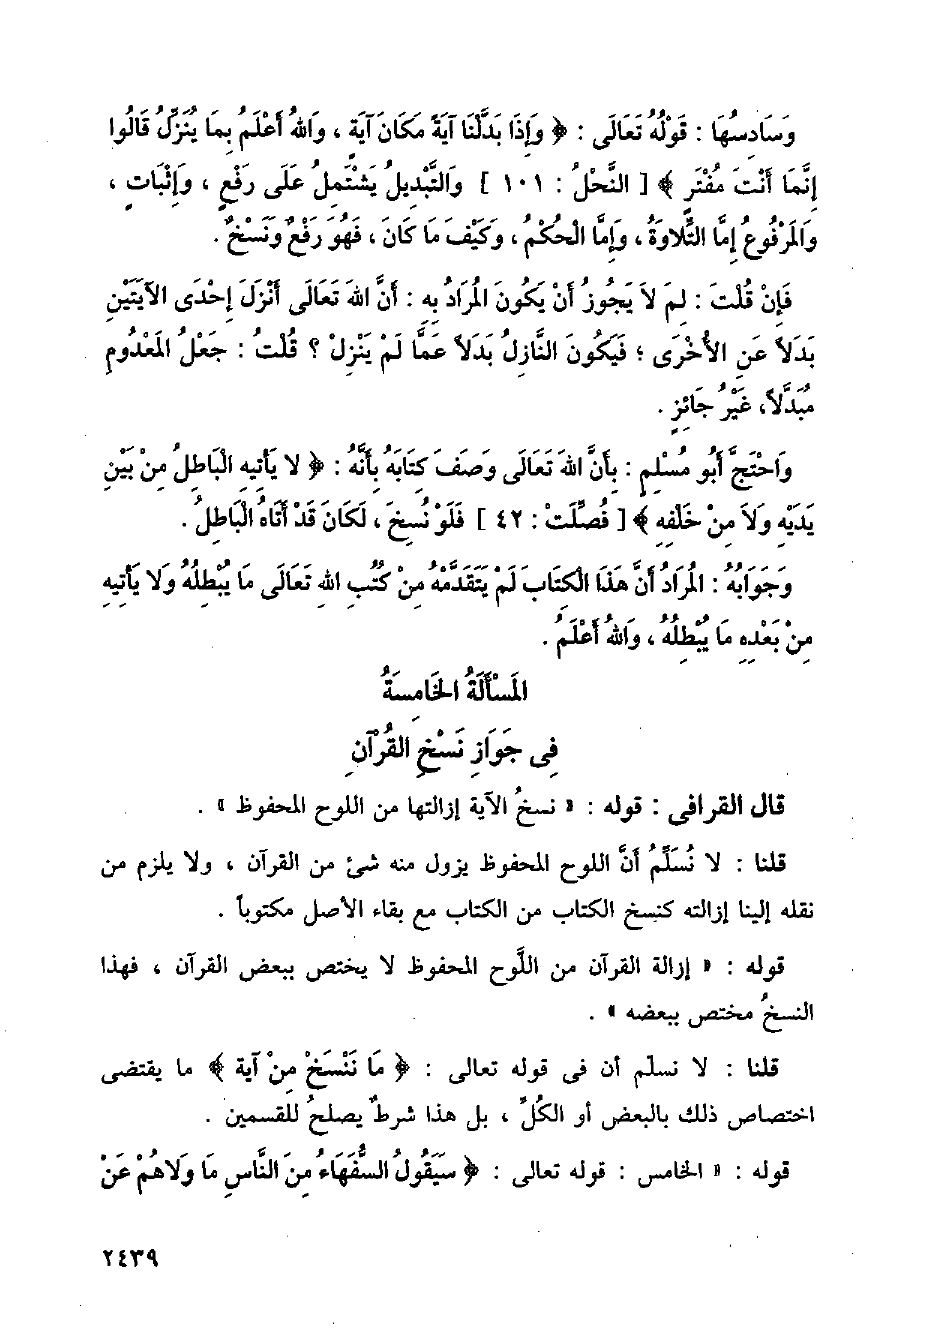 وَسَادِسُهَا : قَوْلُهُ تَعَالَى : ﴿ وَإِذَا بَدَّلْنَا آيَةً مَكَانَ آيَةٍ ، وَاللهُ أَعْلَمُ بِمَا يُنَزِّلُ قَالُوا
إِنَّمَا أَنْتَ مُفْتَرٍ ﴾ [ النَّحْلُ : ١٠١ ] وَالتَّبْدِيلُ يَشْتَمِلُ عَلَى رَفْعٍ ، وَإِثْبَاتٍ ،
وَالْمَرْفُوعُ إِمَّا التِّلَاوَةُ ، وَإِمَّا الْحُكْمُ ، وَكَيْفَ مَا كَانَ ، فَهُوَ رَفْعٌ وَنَسْخٌ .
فَإِنْ قُلْتَ : لِمَ لاَ يَجُوزُ أَنْ يَكُونَ الْمُرَادُ بِهِ : أَنَّ اللهَ تَعَالَى أَنْزَلَ إِحْدَى الآيَتَيْنِ
بَدَلاً عَنِ الأُخْرَى ؛ فَيَكُونَ النَّازِلُ بَدَلاً عَمَّا لَمْ يَنْزِلْ ؟ قُلْتُ : جَعْلُ الْمَعْدُومِ
مُبَدَّلاً، غَيْرُ جَائِزٍ .
وَاحْتَجَّ أَبُو مُسْلِمٍ : بِأَنَّ اللهَ تَعَالَى وَصَفَ كِتَابَهُ بِأَنَّهُ : ﴿ لا يَأْتِيهِ الْبَاطِلُ مِنْ بَيْنِ
يَدَيْهِ وَلاَ مِنْ خَلْفِهِ ﴾ [ فُصِّلَتْ : ٤٢ ] فَلَوْ نُسِخَ ، لَكَانَ قَدْ أَتَاهُ الْبَاطِلُ .
وَجَوَابُهُ : الْمُرَادُ أَنَّ هَذَا الْكِتَابَ لَمْ يَتَقَدَّمْهُ مِنْ كُتُبِ اللهِ تَعَالَى مَا يُبْطِلُهُ وَلا يَأْتِيهِ
مِنْ بَعْدِهِ مَا يُبْطِلُهُ ، وَاللهُ أَعْلَمُ .
الْمَسْأَلَةُ الْخَامِسَةُ
فِى جَوَازِ نَسْخِ الْقُرْآنِ
قال القرافى : قوله : « نسخُ الآية إزالتها من اللوح المحفوظ » .
قلنا : لا نُسَلِّمُ أنَّ اللوح المحفوظ يزول منه شئ من القرآن ، ولا يلزم من
نقله إلينا إزالته كنسخ الكتاب من الكتاب مع بقاء الأصل مكتوباً .
قوله : « إزالة القرآن من اللَّوح المحفوظ لا يختص ببعض القرآن ، فهذا
النسخُ مختص ببعضه » .
قلنا : لا نسلّم أن فى قوله تعالى : ﴿ مَا نَنْسَخْ مِنْ آيَةٍ ﴾ ما يقتضى
اختصاص ذلك بالبعض أو الكُلِّ ، بل هذا شرطٌ يصلحُ للقسمين .
قوله : « الخامس : قوله تعالى : ﴿ سَيَقُولُ السُّفَهَاءُ مِنَ النَّاسِ مَا وَلاهُمْ عَنْ
٢٤٣٩